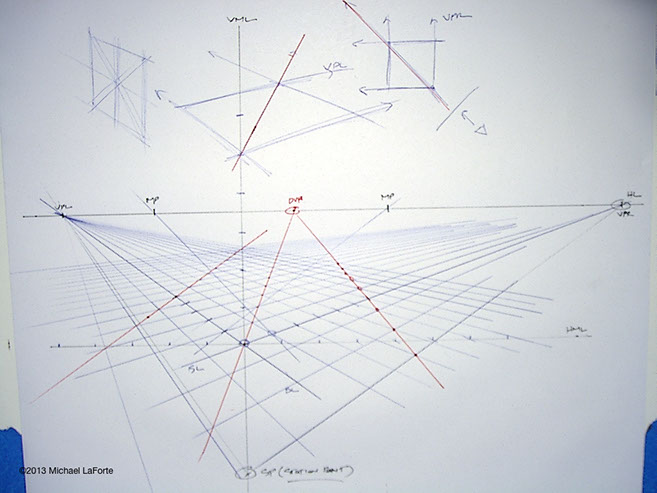 VML
VPR
VPL
VPL
MP
DVP
MP
HL
VPR
HML
SL
SP (STATION POINT)
©2013 Michael LaForte